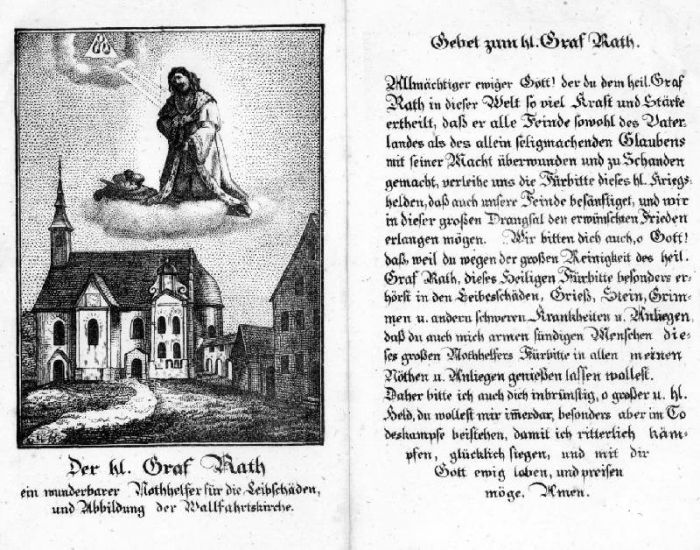 Der hl. Graf Rath
ein wunderbarer Nothhelfer für die Leibschäden,
und Abbildung der Wallfahrtskirche.
Gebet zum hl. Graf Rath.
Allmächtiger ewiger Gott! der du dem heil. Graf
Rath in dieser Welt so viel Kraft und Stärke
ertheilt, daß er alle Feinde sowohl des Vater
landes als des allein seligmachenden Glaubens
mit seiner Macht überwunden und zu Schanden
gemacht, verleihe uns die Fürbitte dieses hl. Kriegs
helden, daß auch unsere Feinde besänftiget, und wir
in dieser großen Drangsal den erwünschten Frieden
erlangen mögen. Wir bitten dich auch, o Gott!
daß, weil du wegen der großen Reinigkeit des heil.
Graf Rath, dieses Heiligen Fürbitte besonders er-
hörst in den Leibesschäden, Grieß, Stein, Grim-
men u. andern schweren Krankheiten u. Anliegen,
daß du auch mich armen sündigen Menschen die-
ses großen Nothhelfers Fürbitte in allen meinen
Nöthen u. Anliegen genießen lassen wollest.
Daher bitte ich auch dich inbrünstig, o großer u. hl.
Held, du wollest mir im̄erdar, besonders aber im To
deskampfe beistehen, damit ich ritterlich käm-
pfen, glücklich siegen, und mit dir
Gott ewig loben, und preisen
möge. Amen.